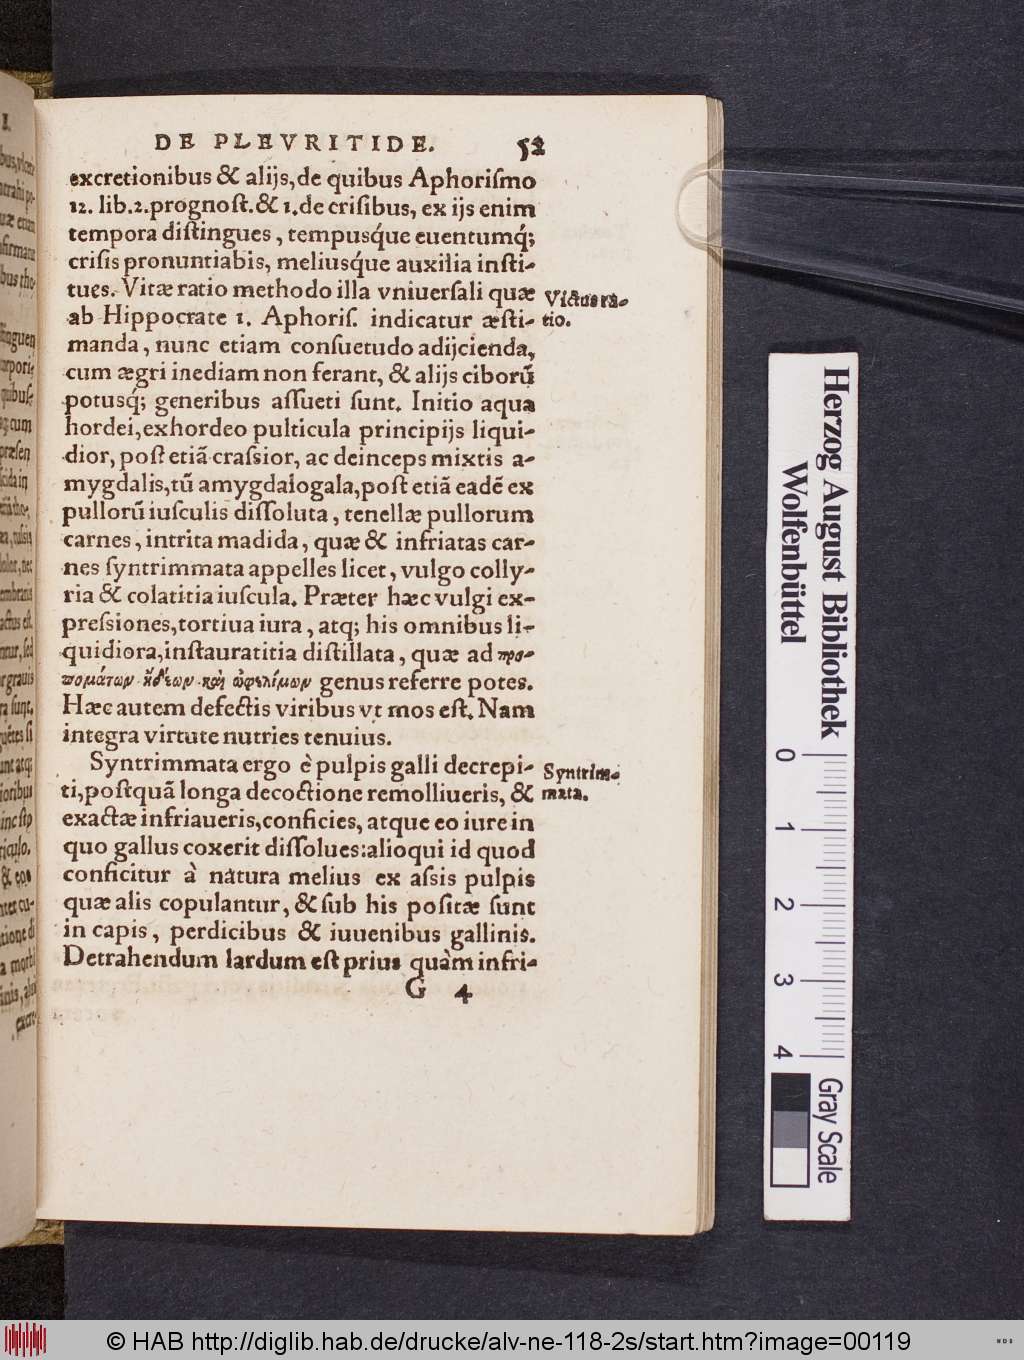 DE PLEVRITIDE. 52
excretionibus & alijs, de quibus Aphoriſmo
12. lib.2.prognoſt.& 1.de criſibus, ex ijs enim
tempora diſtingues, tempusq́ue euentumq́;
criſis pronuntiabis, meliusq́ue auxilia inſti-
tues. Vitæ ratio methodo illa vniuerſali quæ
Victus ra-
ab Hippocrate 1. Aphoriſ. indicatur æſti-
tio.
manda, nunc etiam conſuetudo adijcienda,
cum ægri inediam non ferant, & alijs ciborũ
potusq́; generibus aſſueti ſunt. Initio aqua
hordei, exhordeo pulticula principijs liqui-
dior, poſt etiã craſsior, ac deinceps mixtis a-
mygdalis, tũ amygdalogala, poſt etiã eadẽ ex
pullorũ iuſculis diſſoluta, tenellæ pullorum
carnes, intrita madida, quæ & infriatas car-
nes ſyntrimmata appelles licet, vulgo colly-
ria & colatitia iuſcula. Præter hæc vulgi ex-
preſsiones, tortiua iura, atq; his omnibus li-
quidiora, inſtauratitia diſtillata, quæ ad προ-
πομάτων ἡδέων καὶ ὠφελίμων genus referre potes.
Hæc autem defectis viribus vt mos eſt. Nam
integra virtute nutries tenuius.
Syntrimmata ergo è pulpis galli decrepi-
Syntrim-
ti, poſtquã longa decoctione remolliueris, &
mata.
exactæ infriaueris, conficies, atque eo iure in
quo gallus coxerit diſſolues: alioqui id quod
conficitur à natura melius ex aſsis pulpis
quæ alis copulantur, & ſub his poſitæ ſunt
in capis, perdicibus & iuuenibus gallinis.
Detrahendum lardum eſt prius quàm infri-
G 4
Herzog August Bibliothek
Wolfenbüttel
0 1 2 3 4
Gray Scale
© HAB http://diglib.hab.de/drucke/alv-ne-118-2s/start.htm?image=00119